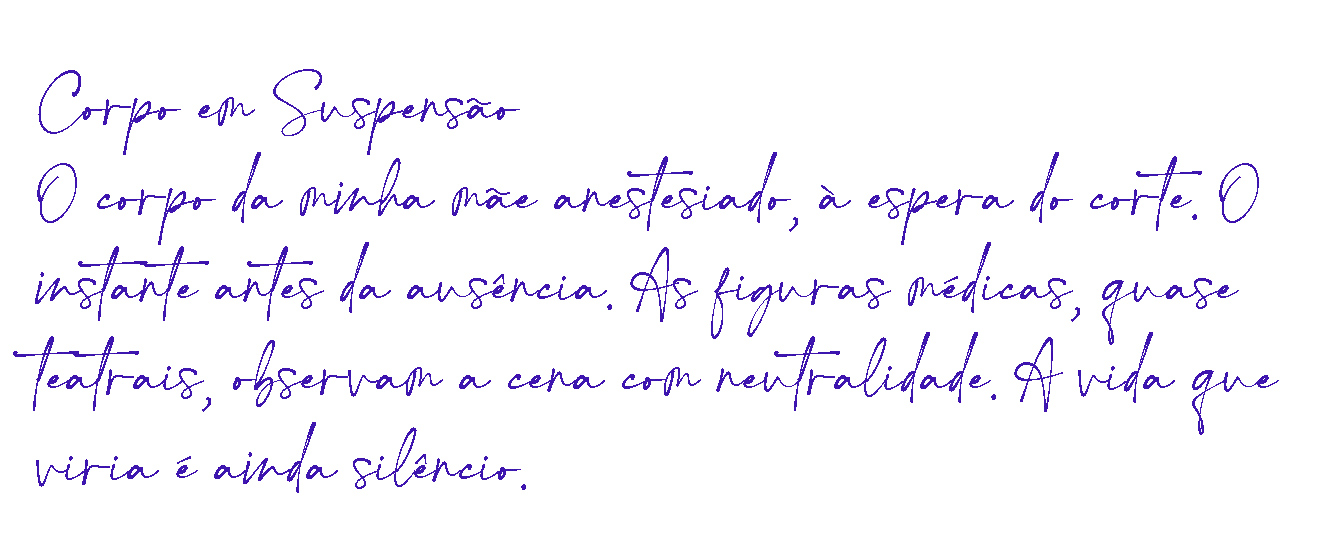 Corpo em Suspensão
O corpo da minha mãe anestesiado, à espera do corte. O
instante antes da ausência. As figuras médicas, quase
teatrais, observam a cena com neutralidade. A vida que
viria é ainda silêncio.